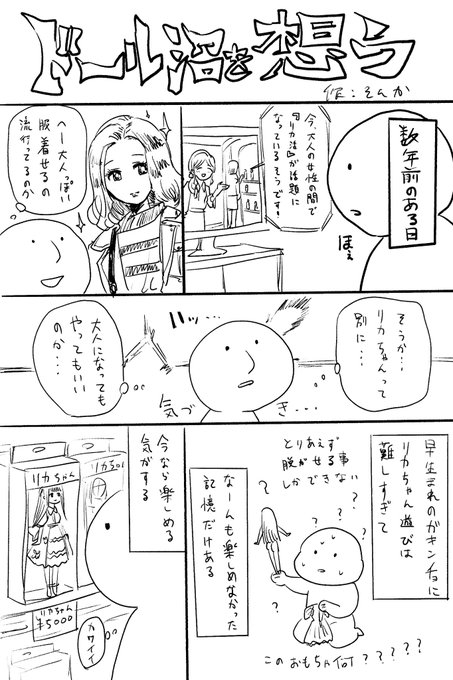 ドール沼を想う
作:そんか
数年前のある日
ほぇ
今、大人の女性の間で
『リカ活』が話題に
なっているそうです!
へー大人っぽい
服着せるの
流行ってるのか
そうか…
リカちゃんって
別に…
ドッ…
気づき…
大人になっても
やってもいい
のか…
早生まれのガキンチョに
リカちゃん遊びは
難しすぎて
とりあえず
脱がせる事
しかできない
?
?
?
?
?
?
?
?
このおもちゃ何?????
なーんも楽しめなかった
記憶だけある
今なら楽しめる
気がする
リカちゃん
リカちゃん
リカちゃん
¥5000
カワイイ